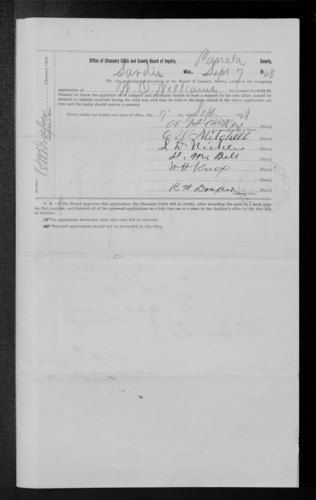 Office of Chancery Clerk and County Board of Inquiry, Panola County,
Sardis Miss., Sept 7 1908
We, the undersigned members of the Board of Inquiry, hereby approve the foregoing
application of W. O. Williams for pension
because we know the applicant to be indigent and physically unable to earn a support by his own labor, caused by
wounds or injuries received during the civil war, and that we believe the facts stated in the above application are
true and the party should receive a pension.
Given under our hands and seals of office, this 7 day of Sept 1908
[Seal]
Mitchell [Seal]
[Seal]
[Seal]
W H Knox [Seal]
[Seal]
[Seal]
Chancery Clerk.
N. B.—If the Board approves this application, the Chancery Clerk will so certify. After recording the same in a book kept
for that purpose, and forward all of the approved applications in a body (not one at a time) to the Auditor's office by the first day
of October.
No application forwarded after this time will be received.
Rejected applications should not be forwarded to this office.
Chancery Clerk.